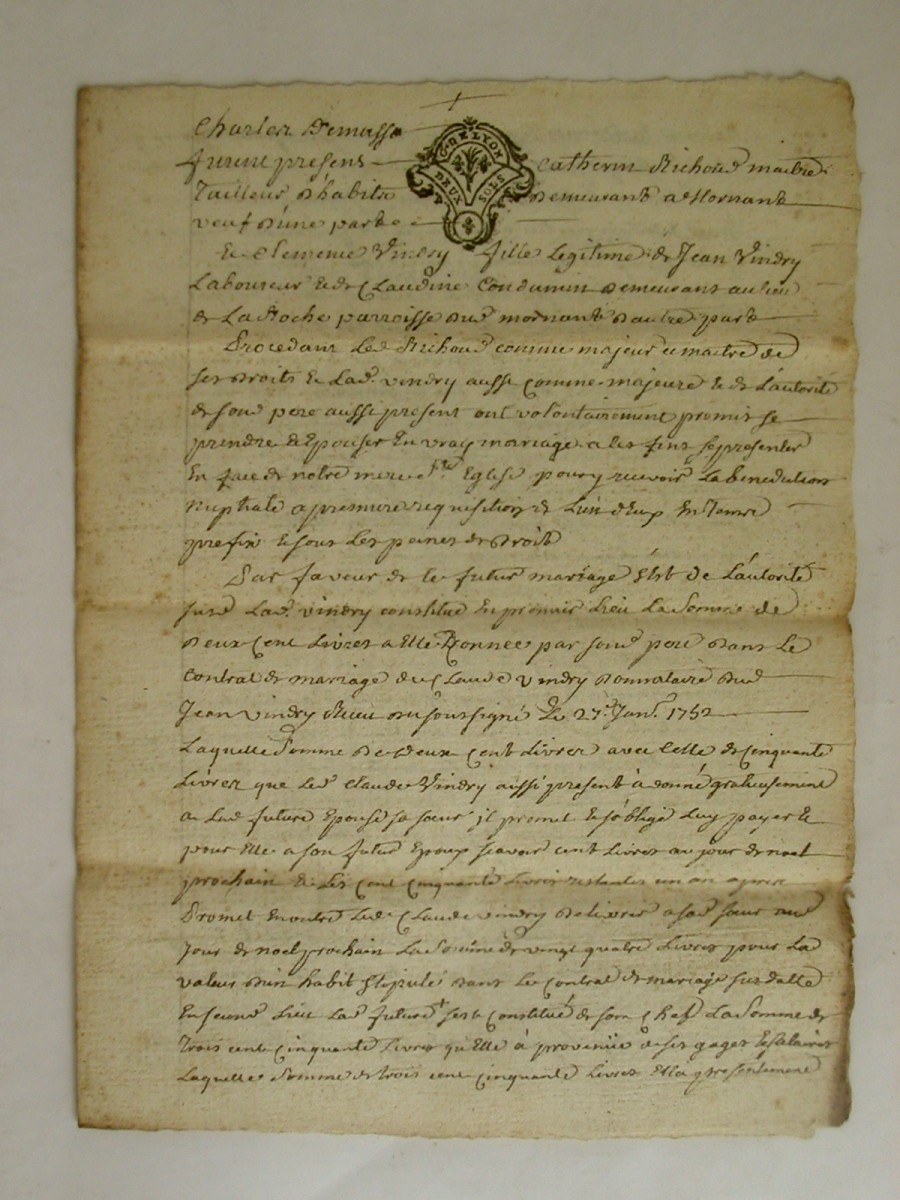 Charles Demasse
G. DE LYON
DEUX SOLS
furent presens Catherin Richoud maitre
Tailleur d'habits demeurant a Mornant
veuf d'une part
Et Clemence Vindry fille Legitime de Jean Vindry
Laboureur & de Claudine Condamin demeurant au lieu
de La Roche parroisse dud mornant d'autre part
Procedant Led Richoud comme majeur et maitre de
ses droits & Lad. vindry aussi comme majeure & de L'autorité
de sond pere aussi present ont volontairement promis se
prendre & Epouser En vray mariage a les fins se presenter
En face de notre mere Ste Eglise pour y recevoir La benediction
Nuptiale a premiere requisition de L'un d'eux En Temps
prefix & sous Les peines de droit
Par faveur de ce futur mariage Et de L'autorité
Lad. vindry constitue En premier Lieu La Somme de
deux Cent Livres a Elle donnée par sond pere dans Le
Contrat de mariage du Claude vindry donnataire dud
Jean vindry Reçu du soussigné Le 27e Janv. 1752
Laquelle Somme de deux cent Livres avec celle de cinquante
Livres que Led Claude Vindry aussi present à donné gratieusement
a Lad future Epouse sa sœur il promet & s'oblige Luy payer &
pour Elle a son futur Epoux scavoir cent Livres au jour de noel
prochain & Les Cent cinquante Livres restantes un an apres
Promet En outre Led Claude vindry delivrer a sad sœur aud
Jour de noel prochain La Somme de vingt quatre Livres pour La
valeur d'un habit stipulé dans Le Contrat de mariage susdatté
En second Lieu Lad future s'est Constitué de son Chef La Somme de
Trois cent cinquante Livres qu'Elle à provenüe de ses gages & salaires
Laquelle Somme de trois cent cinquante Livres Ella presentement